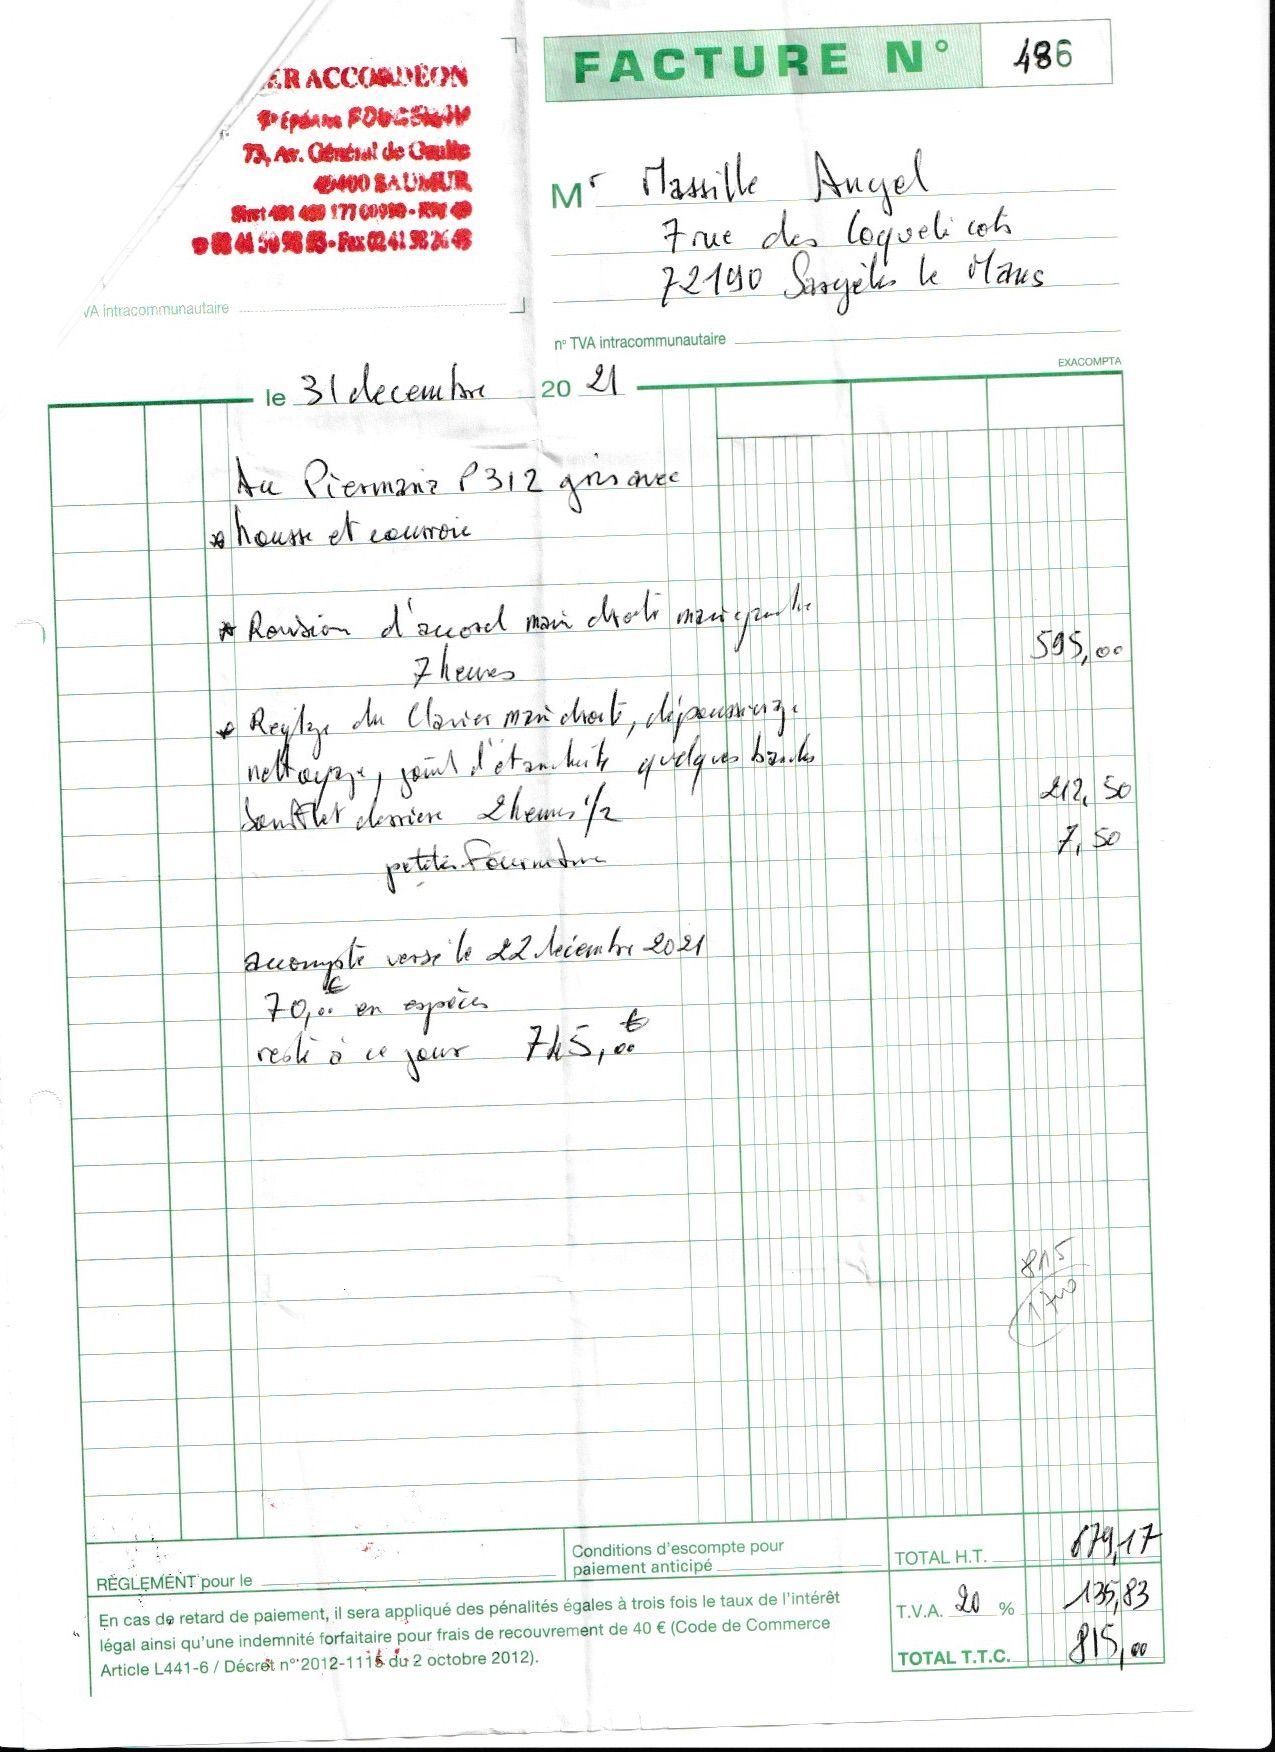 ER ACCORDEON
73, Av. Général de Gaulle
49400 SAUMUR
FACTURE N° 486
Mr Massille Angel
7 rue des Coquelicots
72190 Sargèles le Mans
VA intracommunautaire
n° TVA intracommunautaire
EXACOMPTA
le 31 decembre 20 21
Au Piermaria P312 gris avec
* housse et courroie
* Revision d'accord main droite main gauche
7 heures 595,00
* Reglage du Clavier main droite, dépoussierage
nettoyage, joint d'étancheité quelques bandes
Soufflet derriere 2 heures 1/2 212,50
petites Fourniture 7,50
accompte versé le 22 décembre 2021
70,00 € en espèces
reste à ce jour 745,00 €
815
TOTAL H.T. 679,17
Conditions d'escompte pour
paiement anticipé
RÈGLEMENT pour le
T.V.A. 20 % 135,83
TOTAL T.T.C. 815,00
En cas de retard de paiement, il sera appliqué des pénalités égales à trois fois le taux de l'intérêt
légal ainsi qu'une indemnité forfaitaire pour frais de recouvrement de 40 € (Code de Commerce
Article L441-6 / Décret n° 2012-1115 du 2 octobre 2012).